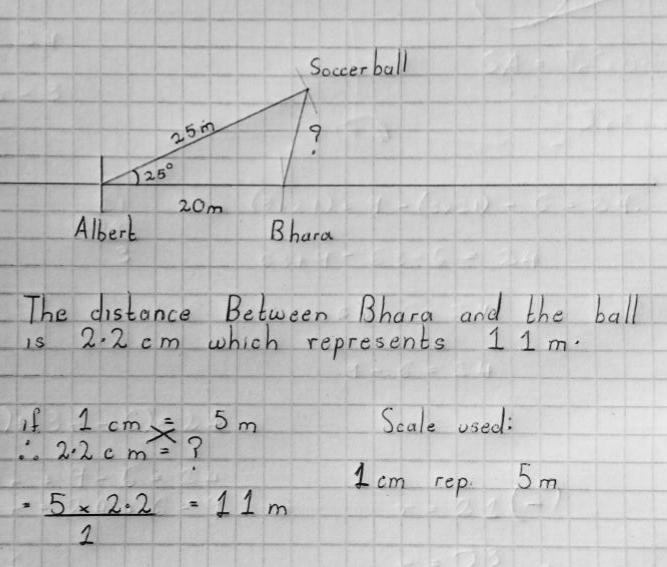 Soccer ball
25m
?
25°
20m
Albert
Bhara
The distance Between Bhara and the ball
is 2.2 cm which represents 11m.
if 1 cm = 5 m
∴ 2.2 cm = ?
= 5 × 2.2 = 11 m
1
Scale used:
1 cm rep. 5m